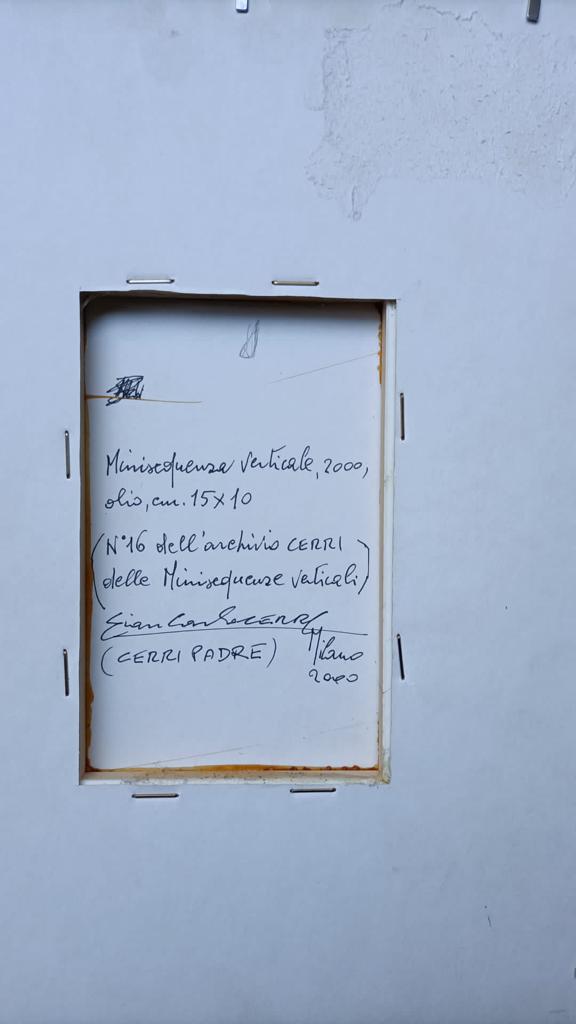 Minisequenza verticale, 2000,
olio, cm. 15x10
(N°16 dell'archivio CERRI
delle Minisequenze verticali)
GianCarloCERRI
(CERRI PADRE) Milano
2000